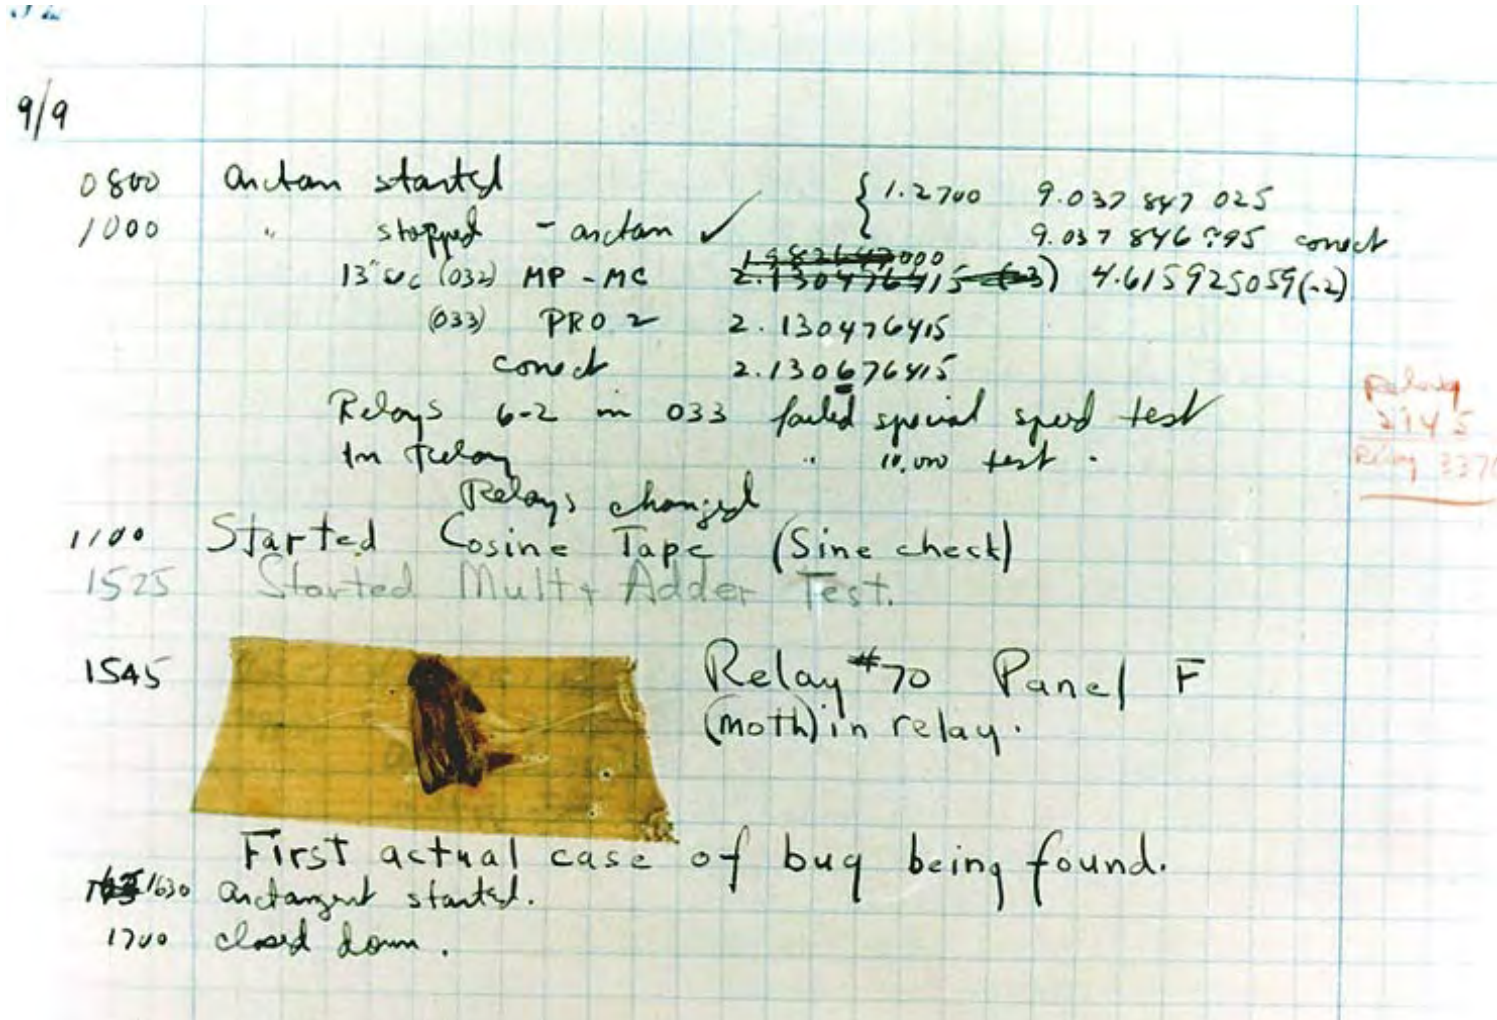 9/9
0800 arctan started { 1.2700 9.037 847 025
1000 " stopped - arctan ✓ 9.037 846 795 correct
13" sec (032) MP - MC 1.982647000 2.130476415 (-3) 4.615925059(-2)
(033) PRO 2 2.130476415
correct 2.130676415
Relays 6-2 in 033 failed special speed test
In Relay " 10,000 test .
Relays changed
Relay
2145
Relay 337
1100 Started Cosine Tape (Sine check)
1525 Started Mult + Adder Test.
1545 Relay #70 Panel F
(moth) in relay.
First actual case of bug being found.
1630 arctangent started.
1700 closed down.